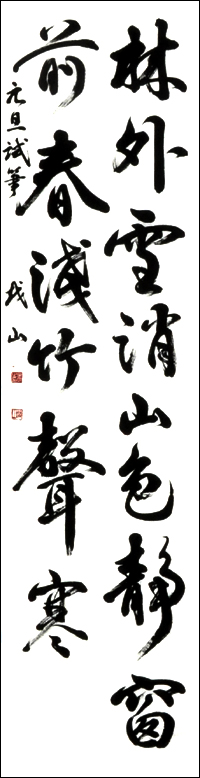 林外雪消山色静窗
前春浅竹聲寒
元旦試筆 山